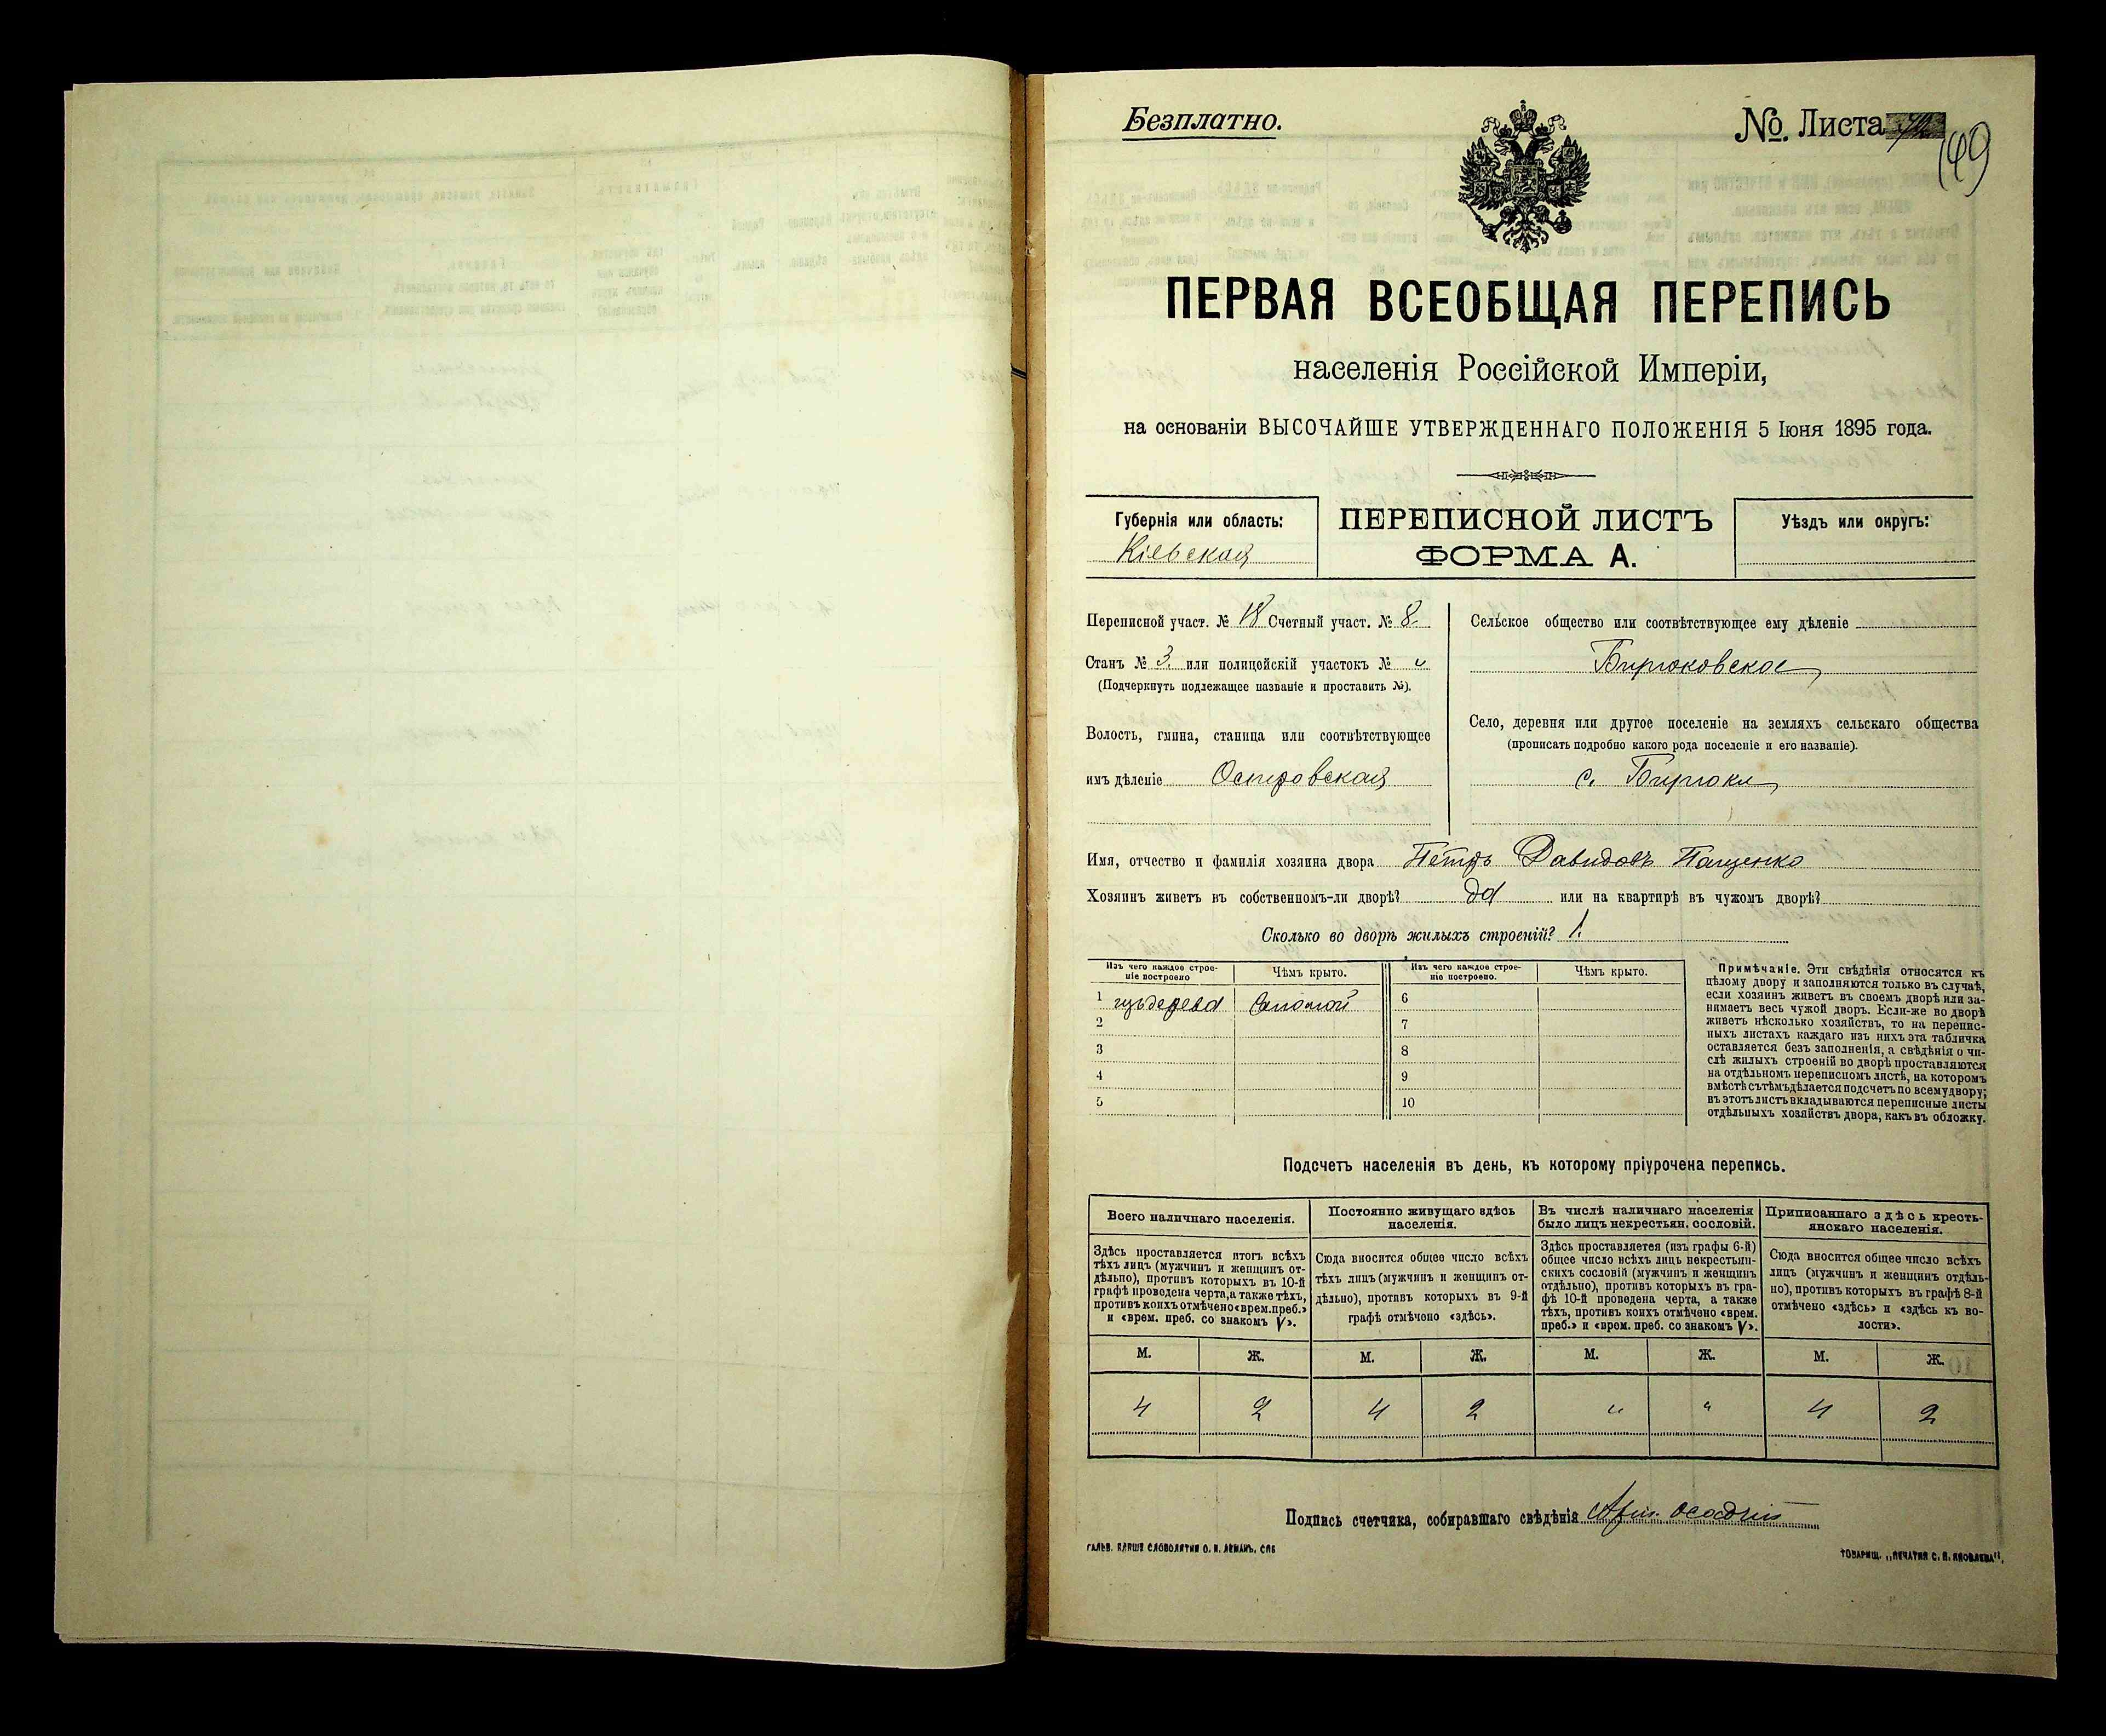 Безплатно.
№. Листа
149
ПЕРВАЯ ВСЕОБЩАЯ ПЕРЕПИСЬ
населенія Россійской Имперіи,
на основаніи ВЫСОЧАЙШЕ УТВЕРЖДЕННАГО ПОЛОЖЕНІЯ 5 Іюня 1895 года.
Губернія или область:
Кіевская
ПЕРЕПИСНОЙ ЛИСТЪ
ФОРМА А.
Уѣздъ или округъ:
Переписной участ. № 18 Счетный участ. № 8.
Станъ № 3. или полицейскій участокъ № "
(Подчеркнуть подлежащее названіе и проставить №).
Волость, гмина, станица или соотвѣтствующее
имъ дѣленіе Островская
Сельское общество или соотвѣтствующее ему дѣленіе
Бирюковское
Село, деревня или другое поселеніе на земляхъ сельскаго общества
(прописать подробно какого рода поселеніе и его названіе).
с. Бирюки
Имя, отчество и фамилія хозяина двора Петръ Давидовъ Пащенко
Хозяинъ живетъ въ собственномъ-ли дворѣ? да или на квартирѣ въ чужомъ дворѣ?
Сколько во дворѣ жилыхъ строеній? 1.
Изъ чего каждое строе-
ніе построено
Чѣмъ крыто.
Изъ чего каждое строе-
ніе построено.
Чѣмъ крыто.
1 изъ дерева Соломой 6
2 7
3 8
4 9
5 10
Примѣчаніе. Эти свѣдѣнія относятся къ
цѣлому двору и заполняются только въ случаѣ,
если хозяинъ живетъ въ своемъ дворѣ или за-
нимаетъ весь чужой дворъ. Если-же во дворѣ
живетъ нѣсколько хозяйствъ, то на перепис-
ныхъ листахъ каждаго изъ нихъ эта табличка
оставляется безъ заполненія, а свѣдѣнія о чи-
слѣ жилыхъ строеній во дворѣ проставляются
на отдѣльномъ переписномъ листѣ, на которомъ
вмѣстѣ съ тѣмъ дѣлается подсчетъ по всему двору;
въ этотъ листъ вкладываются переписные листы
отдѣльныхъ хозяйствъ двора, какъ въ обложку.
Подсчетъ населенія въ день, къ которому пріурочена перепись.
Всего наличнаго населенія.
Здѣсь проставляется итогъ всѣхъ
тѣхъ лицъ (мужчинъ и женщинъ от-
дѣльно), противъ которыхъ въ 10-й
графѣ проведена черта, а также тѣхъ,
противъ коихъ отмѣчено «врем. преб.»
и «врем. преб. со знакомъ V».
Постоянно живущаго здѣсь
населенія.
Сюда вносится общее число всѣхъ
тѣхъ лицъ (мужчинъ и женщинъ от-
дѣльно), противъ которыхъ въ 9-й
графѣ отмѣчено «здѣсь».
Въ числѣ наличнаго населенія
было лицъ некрестьян. сословій.
Здѣсь проставляется (изъ графы 6-й)
общее число всѣхъ лицъ некрестьян-
скихъ сословій (мужчинъ и женщинъ
отдѣльно), противъ которыхъ въ гра-
фѣ 10-й проведена черта, а также
тѣхъ, противъ коихъ отмѣчено «врем.
преб.» и «врем. преб. со знакомъ V».
Приписаннаго здѣсь кресть-
янскаго населенія.
Сюда вносится общее число всѣхъ
лицъ (мужчинъ и женщинъ отдѣль-
но), противъ которыхъ въ графѣ 8-й
отмѣчено «здѣсь» и «здѣсь къ во-
лости».
М. Ж. М. Ж. М. Ж. М. Ж.
4 2 4 2 " " 4 2
Подпись счетчика, собиравшаго свѣдѣнія
ГАЛЬВ. КЛИШЕ СЛОВОЛИТНИ О. И. ЛЕМАНЪ, СПБ
ТОВАРИЩ. „ПЕЧАТНЯ С. П. ЯКОВЛЕВА".